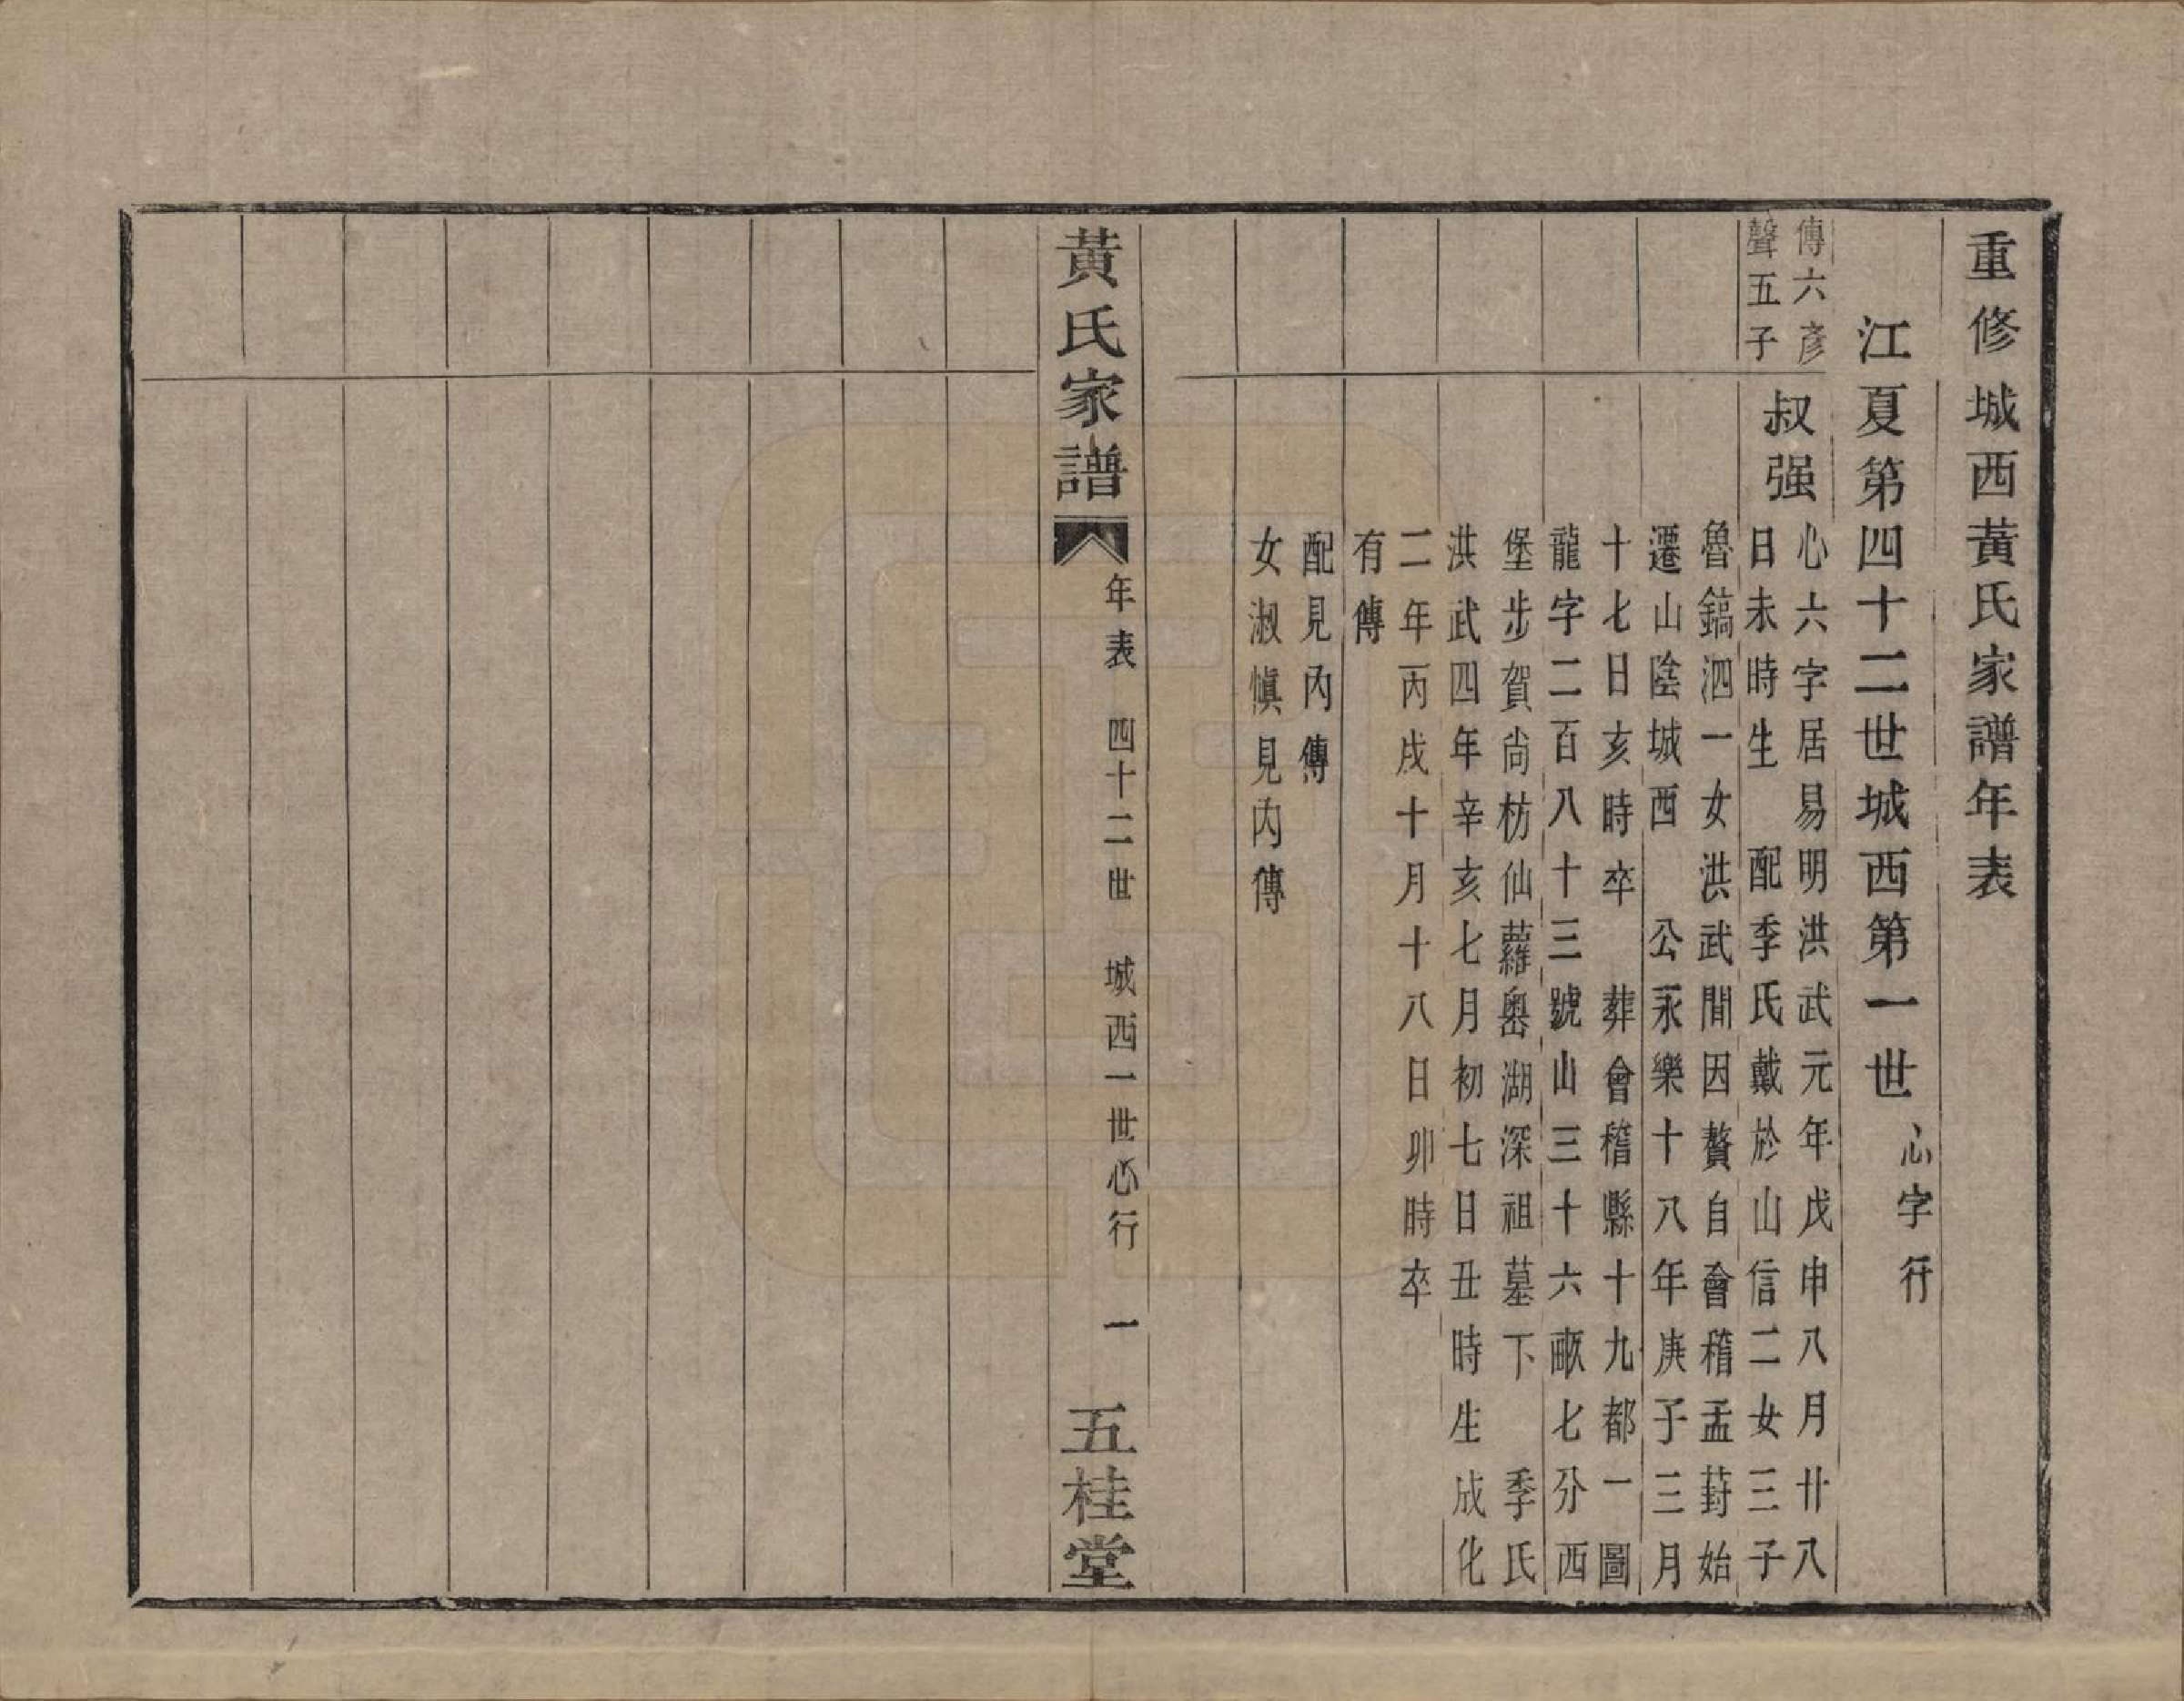 重修城西黃氏家譜年表
江夏第四十二世城西第一世 心字行
傳六彥
聲五子
叔强
心六字居易明洪武元年戊申八月廿八
日未時生 配季氏戴於山信二女三子
魯鎬泗一女洪武間因贅自會稽孟葑始
遷山陰城西 公永樂十八年庚子三月
十七日亥時卒 葬會稽縣十九都一圖
龍字二百八十三號山三十六畝七分西
堡步賀尚枋仙蘿嶴湖深祖墓下 季氏
洪武四年辛亥七月初七日丑時生成化
二年丙戌十月十八日卯時卒
有傳
配見內傳
女淑慎見內傳
黃氏家譜 年表 四十二世 城西一世心行 一 五桂堂